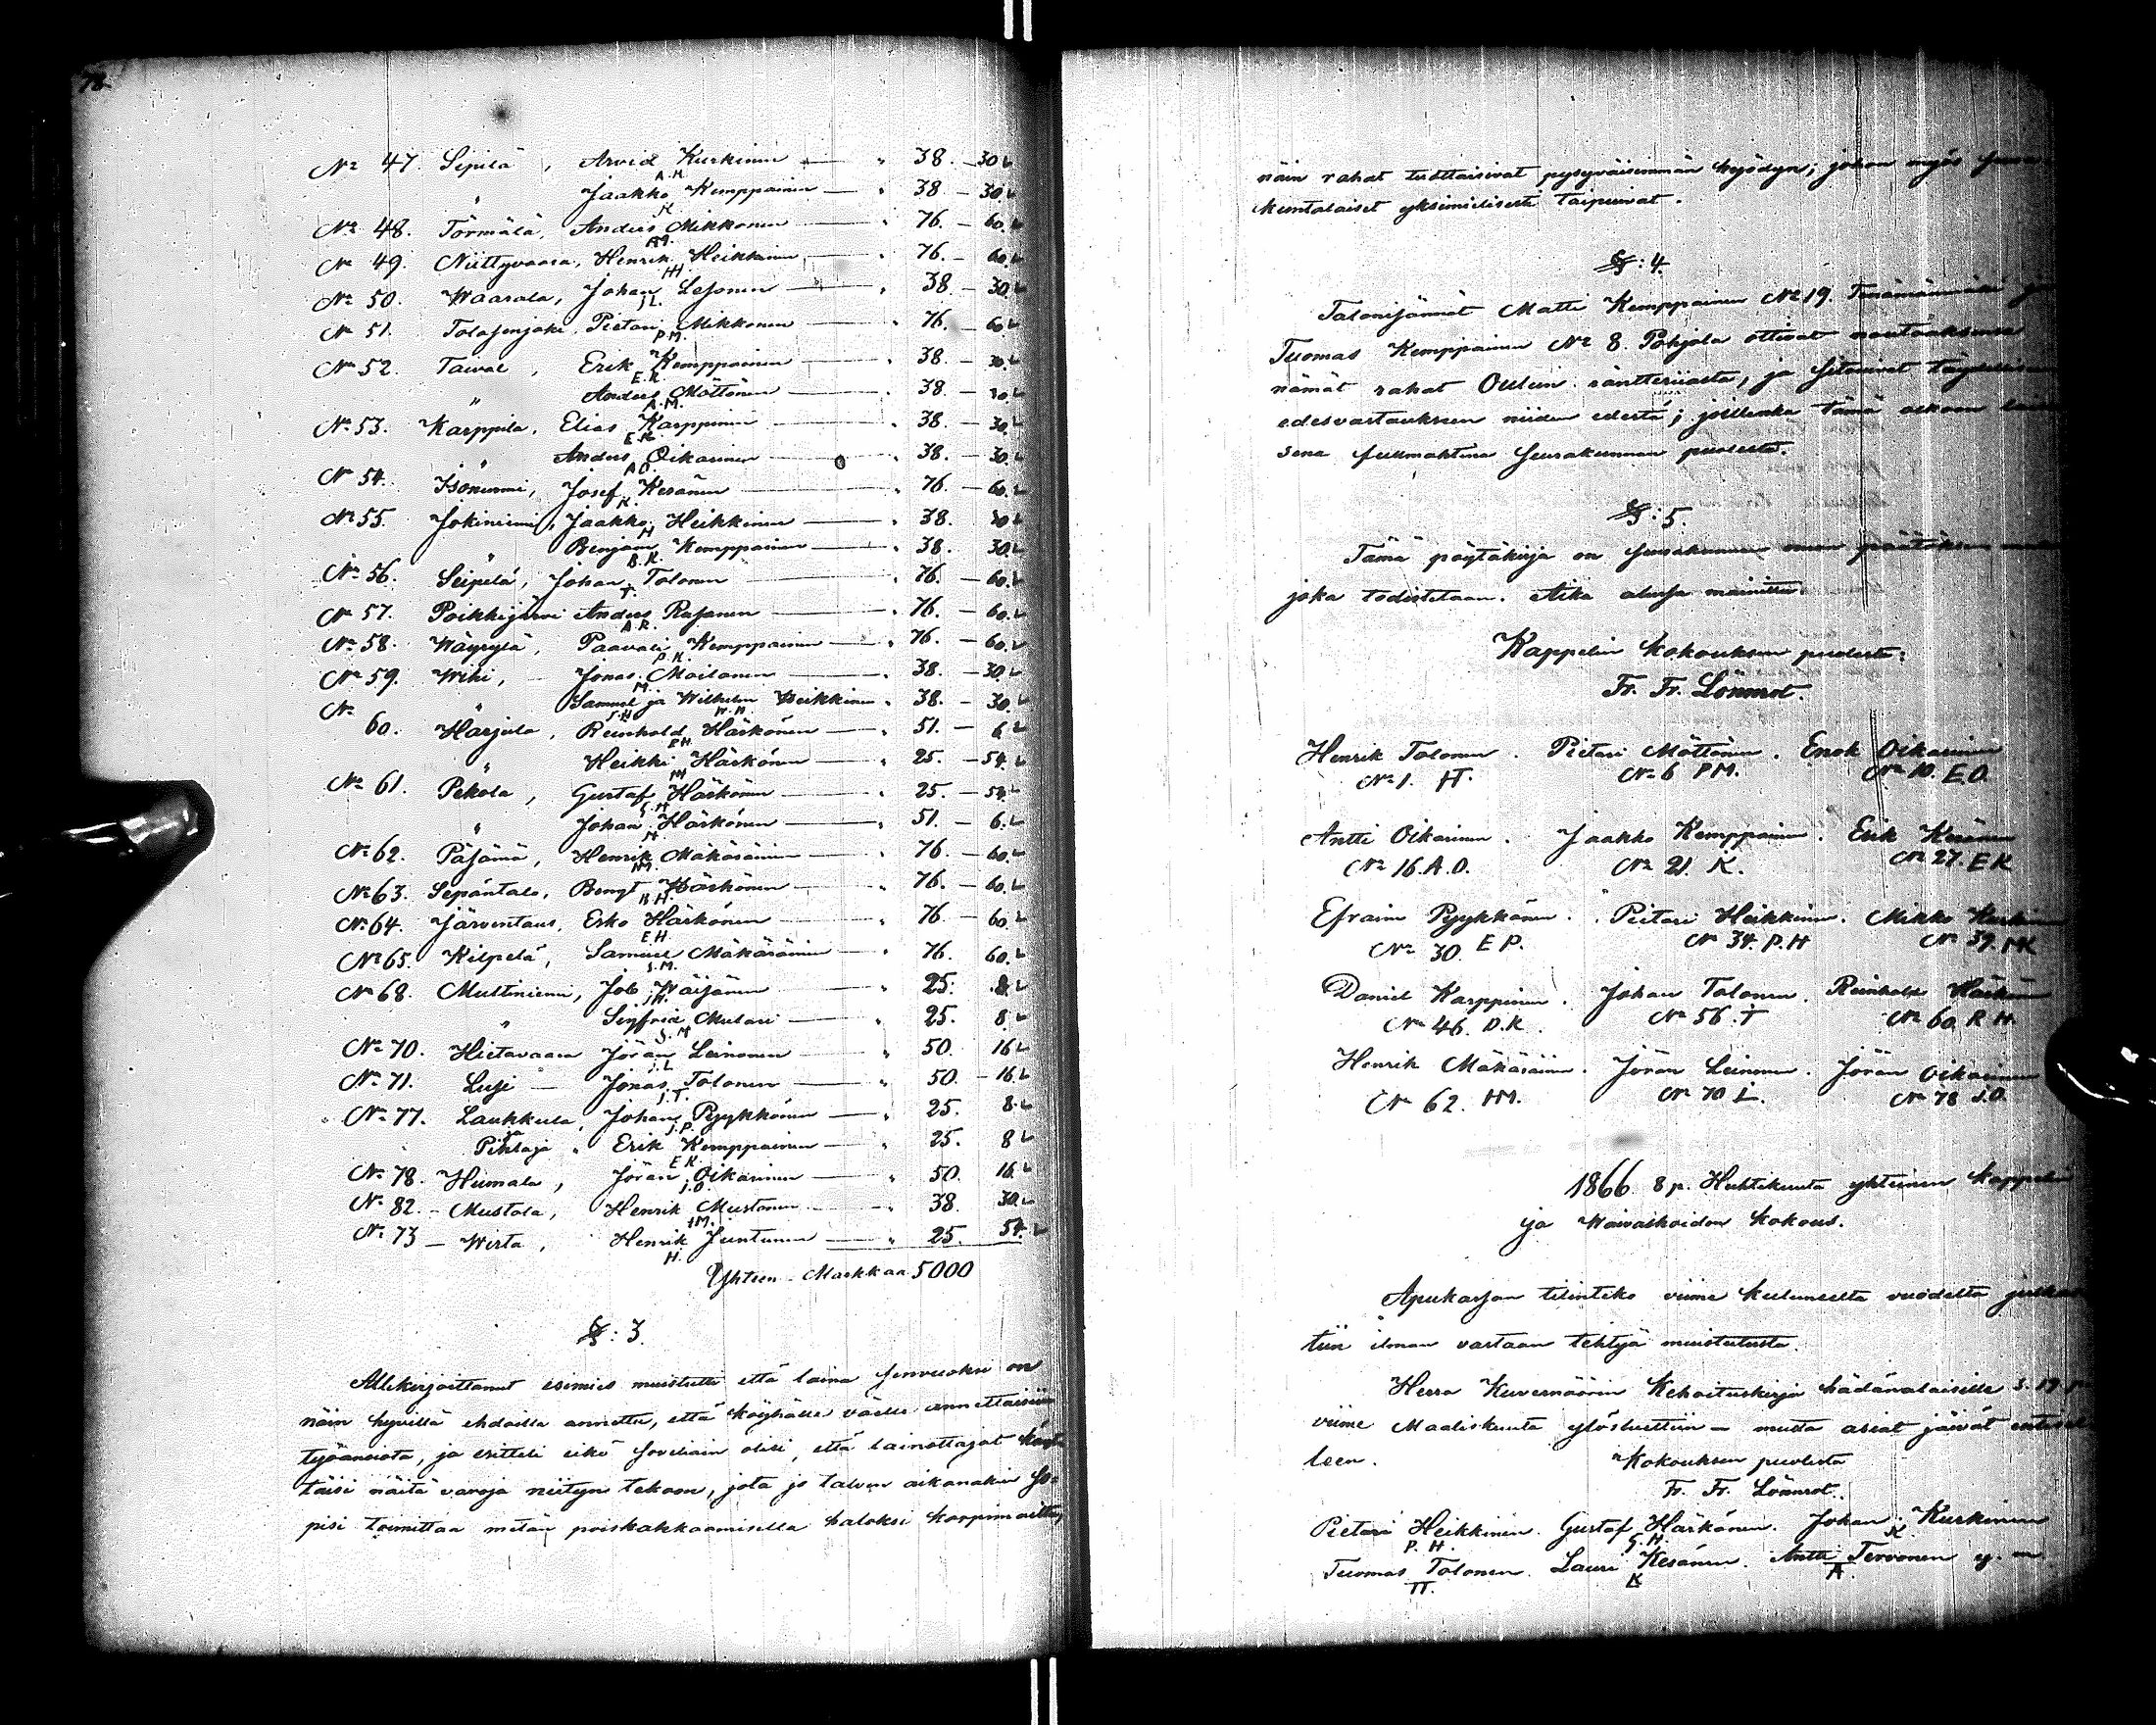 78
No 47. Sipilä, Arvid Kurkinen — " 38. — 30
A. K.
" Jaakko Kemppainen — " 38 — 30
K
No 48. Törmälä, Anders Mikkonen — " 76. — 60.
AM.
No 49. Niittyvaara, Henrik Heikkinen — " 76. — 60.
HH
No 50. Waarala, Johan Lesonen — " 38 — 30
J L.
No 51. Tolosenjoki, Pietari Mikkonen — " 76. — 60
P. M.
No 52. Taival, Erik Kemppainen — " 38. — 30.
E. K.
" Anders Möttönen — " 38. — 30.
A. M.
No 53. Karppila, Elias Karppinen — " 38. — 30.
E. K.
" Anders Oikarinen — " 38. — 30.
A O.
No 54. Isonurmi, Josef Kesänen — " 76. — 60.
K.
No 55. Jokiniemi, Jaakko Heikkinen — " 38. 30
H
" Benjam Kemppainen — " 38. 30.
B. K.
No 56. Seipelä, Johan Tolonen — " 76. — 60.
T.
No 57. Poikkijärvi Anders Rasanen — " 76. — 60.
A. R.
No 58. Wäyrylä, Paavali Kemppainen — " 76. — 60.
P. K.
No 59. Wihi, — Jonas Moilanen — " 38. — 30.
M.
" Samuel ja Wilhelm Heikkinen " 38. — 30.
S. H W. H.
No 60. Harjula, Reinhold Härkönen — " 51. — 6
RH.
" Heikki Härkönen — " 25. — 54.
H
No 61. Pekola, Gustaf Härkönen — " 25. — 54.
G. H
" Johan Härkönen — " 51. — 6.
H.
No 62. Päsämä, Henrik Mäkäräinen — " 76. — 60.
HM.
No 63. Sepäntalo, Bengt Härkönen — " 76. — 60.
B. H.
No 64. Järventaus, Erko Härkönen — " 76 — 60.
E. H.
No 65. Kilpelä, Samuel Mäkäräinen — " 76. 60.
S. M.
No 68. Mustiniemi, Job Wäijänen — " 25. 8
" Sigfrid Mulari — " 25. 8
S. M
No 70. Hietavaara Jöran Leinonen — " 50. 16
J. L
No 71. Lusi — Jonas Tolonen — " 50. — 16.
J. T.
No 77. Laukkula, Johan Pyykkönen — " 25. 8.
J. P.
ja Pihlaja " Erik Kemppainen — " 25. 8
E K.
No 78. Humala, Jöran Oikarinen — " 50. 16
J. O.
No 82. — Mustola, Henrik Mustonen — " 38. 30
HM.
No 73 — Wirta, Henrik Juntunen — " 25. 54.
H.
Yhteen — Markkaa 5000
§: 3.
Allekirjoittanut esimies muistutti että laina senvuoksi on
näin hyvillä ehdoilla annettu, että köyhälle väelle annettaisiin
työansiota, ja esitteli eikö soveliain olisi, että lainottajat käyt-
täisi näitä varoja niityn tekoon, jota jo talven aikanakin so-
pisi toimittaa metän poishakkaamisella haloksi korpimailta,
näin rahat tuottaisivat pysyväisemmän hyödyn; johon myös seura
kuntalaiset yksimielisesti taipuivat.
§: 4.
Talonisännät Matti Kemppainen No 19. ja
Tuomas Kemppainen No 8. Pohjola ottivat noutaaksensa
nämät rahat Oulun ränteriiasta, ja sitoivat
edesvastaukseen niiden edestä; joillenka tämä olkoon
sena fullmahtina seurakunnan puolesta.
§: 5.
Tämä pöytäkirja on seurakunnan päätöksen
joka todistetaan. Aika alussa mainittu.
Kappelin kokouksen puolesta:
Fr. Fr. Lönnrot.
Henrik Tolonen. Pietari Möttönen. Enok Oikarinen
No 1. HT. No 6 PM. No 10. E. O.
Antti Oikarinen. Jaakko Kemppainen. Erik Kesänen
No 16. A. O. No 21 K. No 27. E K
Efraim Pyykkönen. Pietari Heikkinen. Mikko Kurkinen
No 30. E P. No 34. P. H No 39. MK
Daniel Karppinen. Johan Tolonen. Reinhold Härkönen
No 46. D. K. No 56. T No 60. R H.
Henrik Mäkäräinen. Jöran Leinonen. Jöran Oikarinen
No 62. HM. No 70 L. No 78 J. O.
1866 8 p. Huhtikuuta yhteinen kappelin
ja waivashoidon kokous.
Apukassan tilinteko viime kuluneelta vuodelta
tiin ilman vastaan tehtyä muistutusta.
Herra Kuvernöörin Kehoituskirja hädänalaisille s. 17 p
viime Maaliskuuta ylösluettiin — mutta asiat jäivät
leen.
Kokouksen puolesta
Fr. Fr. Lönnrot.
Pietari Heikkinen. Gustaf Härkönen. Johan Kurkinen
P. H. G. H. K
Tuomas Tolonen. Lauri Kesänen. Antti Tervonen y. m.
TT. LK A